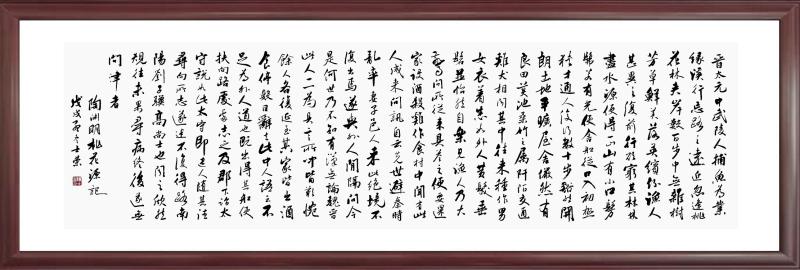 晉太元中武陵人捕魚為業
緣溪行忘路之遠近忽逢桃
花林夾岸數百步中無雜樹
芳草鮮美落英繽紛漁人
甚異之復前行欲窮其林林
盡水源便得一山山有小口髣
髴若有光便舍船從口入初極
狹才通人復行數十步豁然開
朗土地平曠屋舍儼然有
良田美池桑竹之屬阡陌交通
雞犬相聞其中往來種作男
女衣着悉如外人黃髮垂
髫並怡然自樂見漁人乃大
驚問所從來具答之便要還
家設酒殺雞作食村中聞有此
人咸來問訊自云先世避秦時
亂率妻子邑人來此絕境不
復出焉遂與外人間隔問今
是何世乃不知有漢無論魏晉
此人一一為具言所聞皆歎惋
餘人各復延至其家皆出酒
食停數日辭去此中人語云不
足為外人道也既出得其船便
扶向路處處志之及郡下詣太
守說如此太守即遣人隨其往
尋向所志遂迷不復得路南
陽劉子驥高尚士也聞之欣然
規往未果尋病終後遂無
問津者
陶淵明桃花源記
戊戌